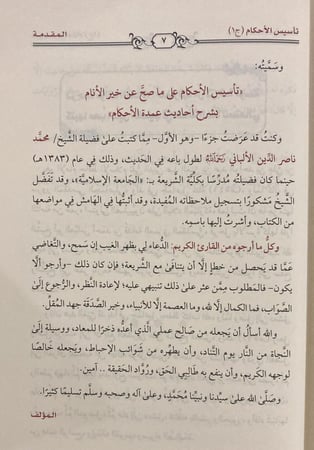 تأسيس الأحكام (ج١)
٧
المقدمة
وسَمَّيتُه:
«تأسيس الأحكام على ما صحَّ عن خير الأنام
بشرح أحاديث عمدة الأحكام»
وكنتُ قد عَرَضتُ جزءًا -وهو الأوَّل- مِمَّا كتبتُ على فضيلة الشَّيخ/ محمَّد
ناصر الدِّين الألباني رَحِمَهُ اللَّهُ لطول باعه في الحديث، وذلك في عام (١٣٨٣هـ)
حينما كان فضيلتُه مُدرِّسًا بكليَّة الشريعة بـ: «الجامعة الإسلاميَّة»، وقد تَفَضَّل
الشَّيخُ مَشكورًا بتسجيل ملاحظاته المُفيدة، وقد أثبتُّها في الهامش في مواضعها
من الكتاب، وأشرتُ إليها باسمِه.
وكلُّ ما أرجوه من القارئ الكريم: الدُّعاء لي بظهر الغيب إن سَمح، والتَّغاضي
عمَّا قد يَحصل من خطإ إلَّا أن يتنافَى مع الشَّريعة؛ فإن كان ذلك -وأرجو ألَّا
يكون- فالمَطلوب مِمَّن عثر على ذلك تنبيهي عليه؛ لإعادة النَّظر، والرُّجوع إلى
الصَّواب، فما الكمال إلَّا لله، وما العصمة إلَّا للأنبياء، وخير الصَّدقة جهد المُقلِّ.
والله أسألُ أن يجعله من صَالِح عملي الَّذي أعدُّه ذخرًا للمعاد، ووسيلة إلَى
النَّجاة من النَّار يوم التَّناد، وأن يطهِّره من شَوائب الإحباط، ويَجعله خالصًا
لوجهه الكريم، وأن ينفع به طالبِي الحق، وروَّاد الحقيقة .. آمين.
وصلَّى الله على سيِّدنا ونبيِّنا مُحَمَّدٍ، وعلى آله وصحبه وسلَّم تسليمًا كثيرًا.
المؤلف